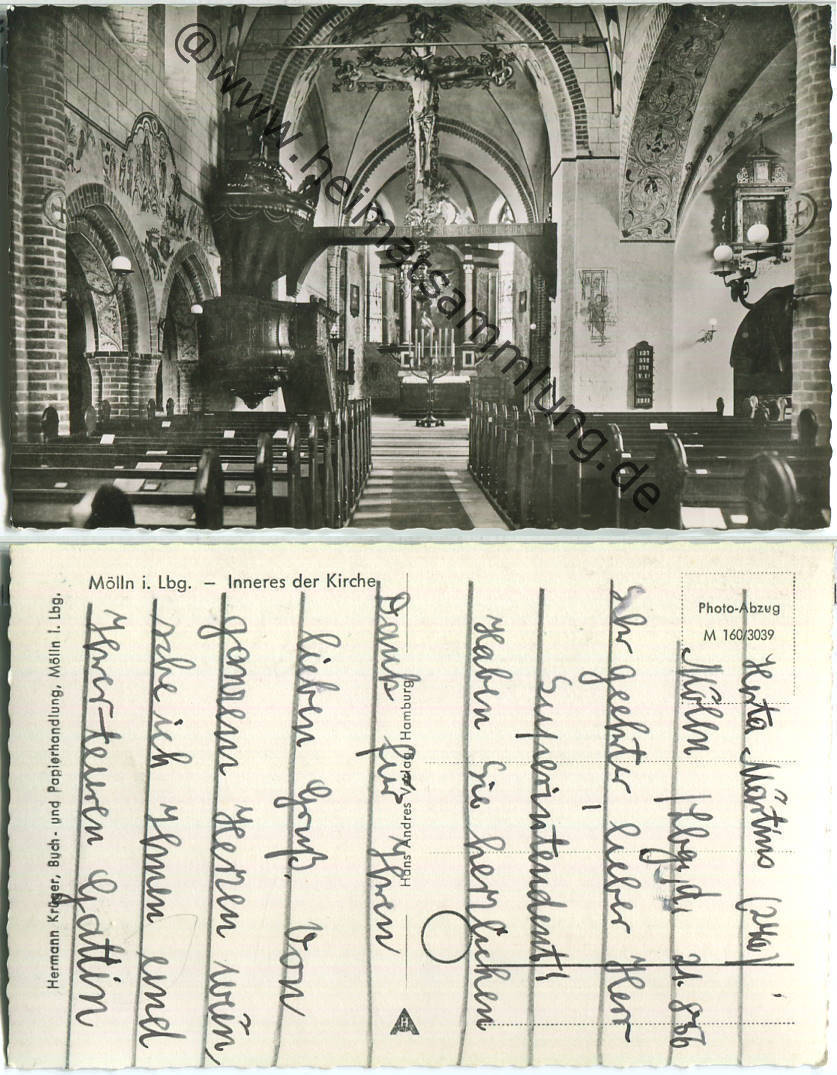 @www.heimatsammlung.de
Mölln i. Lbg. – Inneres der Kirche
Photo-Abzug
M 160/3039
Hermann Krüger, Buch- und Papierhandlung, Mölln i. Lbg.
Hans Andres Verlag, Hamburg
H
Herta Märtins (24a)
Mölln /Lbg, d. 21.8.56
Sehr geehrter lieber Herr
Superintendent!
Haben Sie herzlichen
Dank für Ihren
lieben Gruß. Von
ganzem Herzen wün,
sche ich Ihnen und
Ihrer teuren Gattin